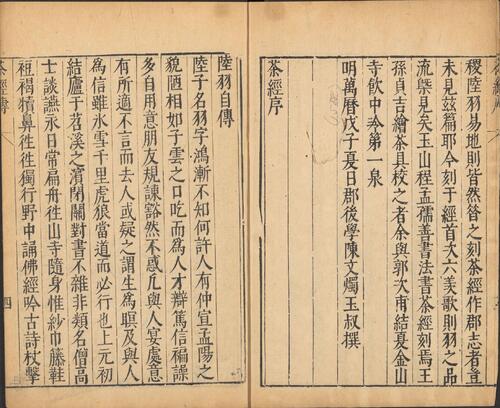 稷陸羽易地則皆然昔之刻茶經作郡志者豈
未見茲篇耶今刻于經首次六羨歌則羽之品
流槩見矣玉山程孟孺善書法書茶經刻焉王
孫貞吉繪茶具校之者余與郭次甫結夏金山
寺飲中泠第一泉
明萬曆戊子夏日郡後學陳文燭玉叔撰
茶經序
陸羽自傳
陸子名羽字鴻漸不知何許人有仲宣孟陽之
貌陋相如子雲之口吃而為人才辯篤信褊躁
多自用意朋友規諫豁然不惑凡與人宴處意
有所適不言而去人或疑之謂生為瞋及與人
為信雖氷雪千里虎狼當道而必行也上元初
結廬于苕溪之濱閉關對書不雜非類名僧高
士談讌永日常扁舟徃山寺隨身惟紗巾藤鞋
裋褐犢鼻徃徃獨行野中誦佛經吟古詩杖擊
四